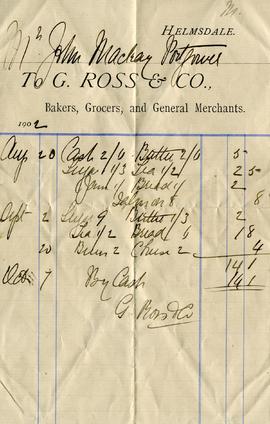 HELMSDALE.
Mr John Mackay Portgower
To G. ROSS & CO.,
Bakers, Grocers, and General Merchants.
1902
Aug 20 Cash 2/6 Butter 2/6 5
1/3 Tea 1/2 2 5
Jam 1/ Bread 1/ 2
8 8
Sept 2 9 Butter 1/3 2
Tea 1/2 Bread 6 1 8
20 2 Cheese 2 4
14 1
Oct 7 By Cash 14 1
G. Ross & Co